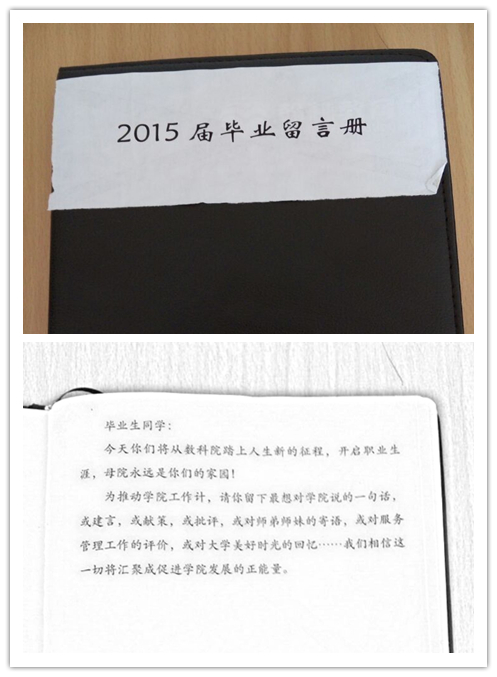 2015 届毕业留言册
毕业生同学：
今天你们将从数科院踏上人生新的征程，开启职业生
涯，母院永远是你们的家园！
为推动学院工作计，请你留下最想对学院说的一句话，
或建言，或献策，或批评，或对师弟师妹的寄语，或对服务
管理工作的评价，或对大学美好时光的回忆……我们相信这
一切将汇聚成促进学院发展的正能量。